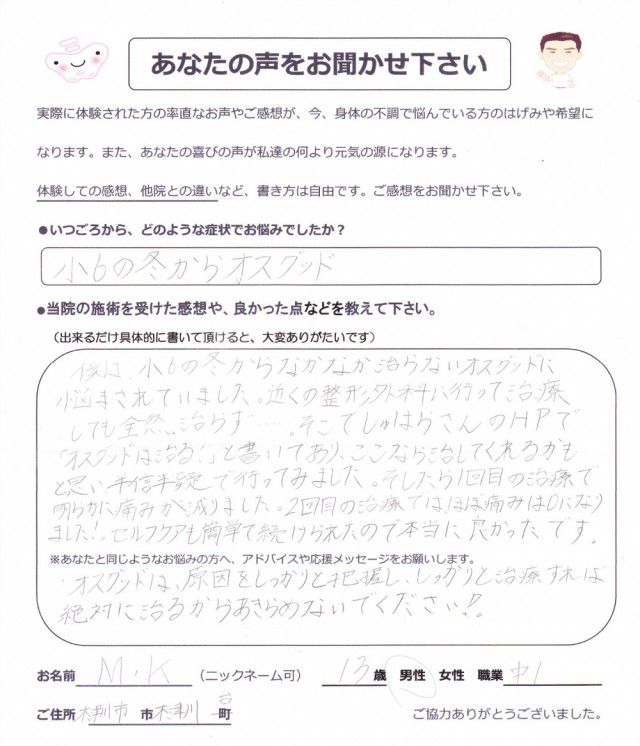 あなたの声をお聞かせ下さい
実際に体験された方の率直なお声やご感想が、今、身体の不調で悩んでいる方のはげみや希望に
なります。また、あなたの喜びの声が私達の何より元気の源になります。
体験しての感想、他院との違いなど、書き方は自由です。ご感想をお聞かせ下さい。
●いつごろから、どのような症状でお悩みでしたか？
小6の冬からオスグッド
●当院の施術を受けた感想や、良かった点などを教えて下さい。
（出来るだけ具体的に書いて頂けると、大変ありがたいです）
僕は、小6の冬からなかなか治らないオスグッドに
悩まされていました。近くの整形外科に行って治療
しても全然治らず…。そこでしゅはらさんのHPで
「オスグッドは治る！」と書いてあり、ここなら治してくれるかも
と思い半信半疑で行ってみました。そしたら1回目の治療で
明らかに痛みが減りました。2回目の治療ではほぼ痛みは0になり
ました！。セルフケアも簡単で続けられたので本当に良かったです。
※あなたと同じようなお悩みの方へ、アドバイスや応援メッセージをお願いします。
オスグッドは、原因をしっかりと把握し、しっかりと治療すれば
絶対に治るからあきらめないでください!!
お名前 M・K （ニックネーム可） 13歳 男性 女性 職業 中1
ご住所 木津川市 市 木津川 台 町 ご協力ありがとうございました。